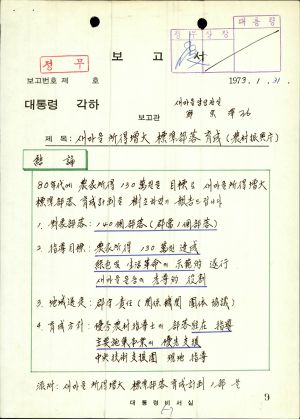 대통령
정무수석
정무
보고서
보고번호 제 호
1973. 1. 31.
대통령 각하
새마을담당관실
보고관
제목: 새마을 所得增大 標準部落 育成 (農村振興庁)
結論
80年代에 農家所得 130萬원을 目標로 새마을 所得增大
標準部落 育成計劃을 樹立하였기 報告드립니다.
1. 對象部落: 140個部落 (郡當 1個部落)
2. 指導目標: 農家所得 130萬원 達成
綠色 및 生活革命의 示範的 遂行
새마을운동의 先導的 役割
3. 地域選定: 郡守 責任 (関係機関 関係 協議)
4. 育成方針: 優秀 農村指導士의 部落駐在 指導
主要施策事業의 優先支援
中央技術支援團 現地 指導
添附: 새마을 所得增大 標準部落 育成計劃 1部 끝
대통령비서실
9